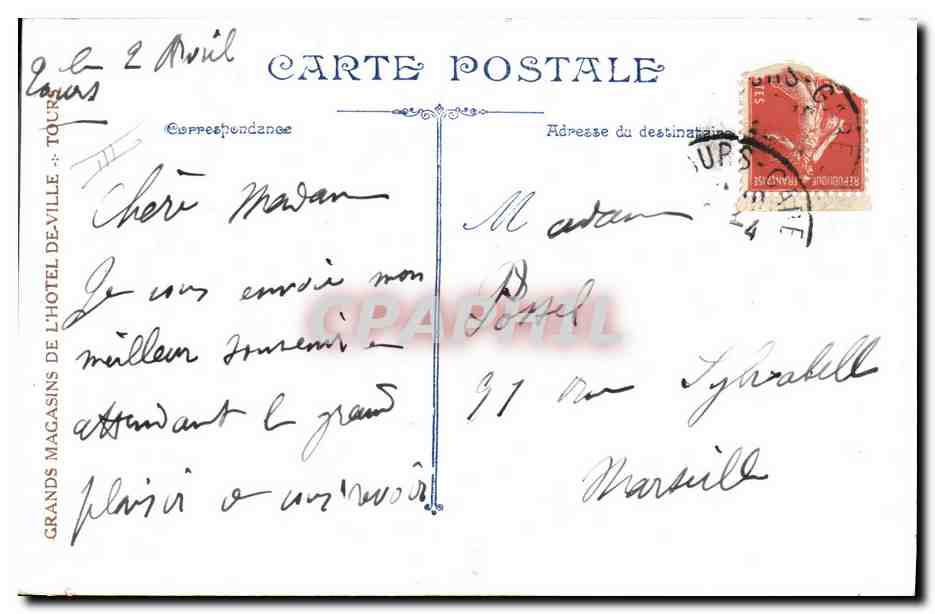 le 2 Avril
Tours
CARTE POSTALE
Correspondance
Adresse du destinataire
GRANDS MAGASINS DE L'HOTEL-DE-VILLE ÷ TOURS
III
Chère Madame
Je vous envoie mon
meilleur souvenir en
attendant le grand
plaisir de vous revoir
Madame
Possel
91 rue Sylvabelle
Marseille
RÉPUBLIQUE FRANÇAISE
TOURS-GARE
CPAPHIL